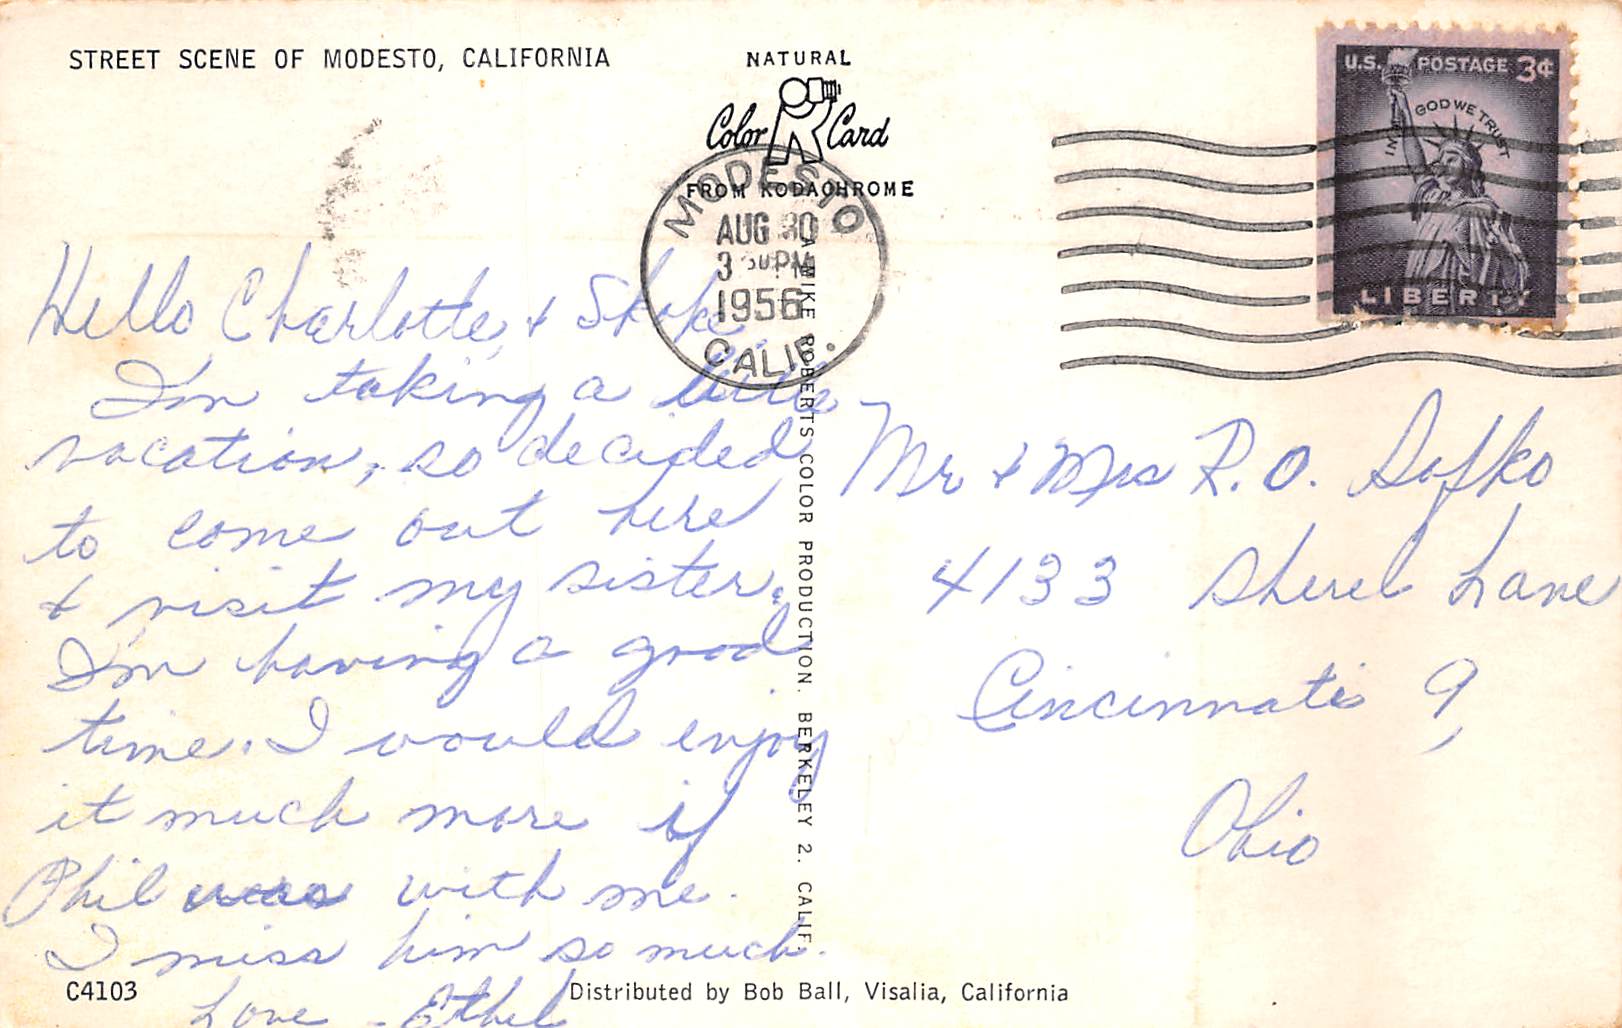 STREET SCENE OF MODESTO, CALIFORNIA
NATURAL
Color Card
FROM KODACHROME
U.S. POSTAGE 3¢
IN GOD WE TRUST
LIBERTY
MODESTO
AUG 30
3 PM
1956
CALIF.
Hello Charlotte, &
I'm taking a little
vacation, so decided
to come out here
& visit my sister.
I'm having a good
time. I would enjoy
it much more if
Phil was with me.
I miss him so much.
Love - Ethel
A MIKE ROBERTS COLOR PRODUCTION. BERKELEY 2. CALIF.
Mr & Mrs R.O. Sofko
4133 Sherel Lane
Cincinnati 9,
Ohio
C4103
Distributed by Bob Ball, Visalia, California